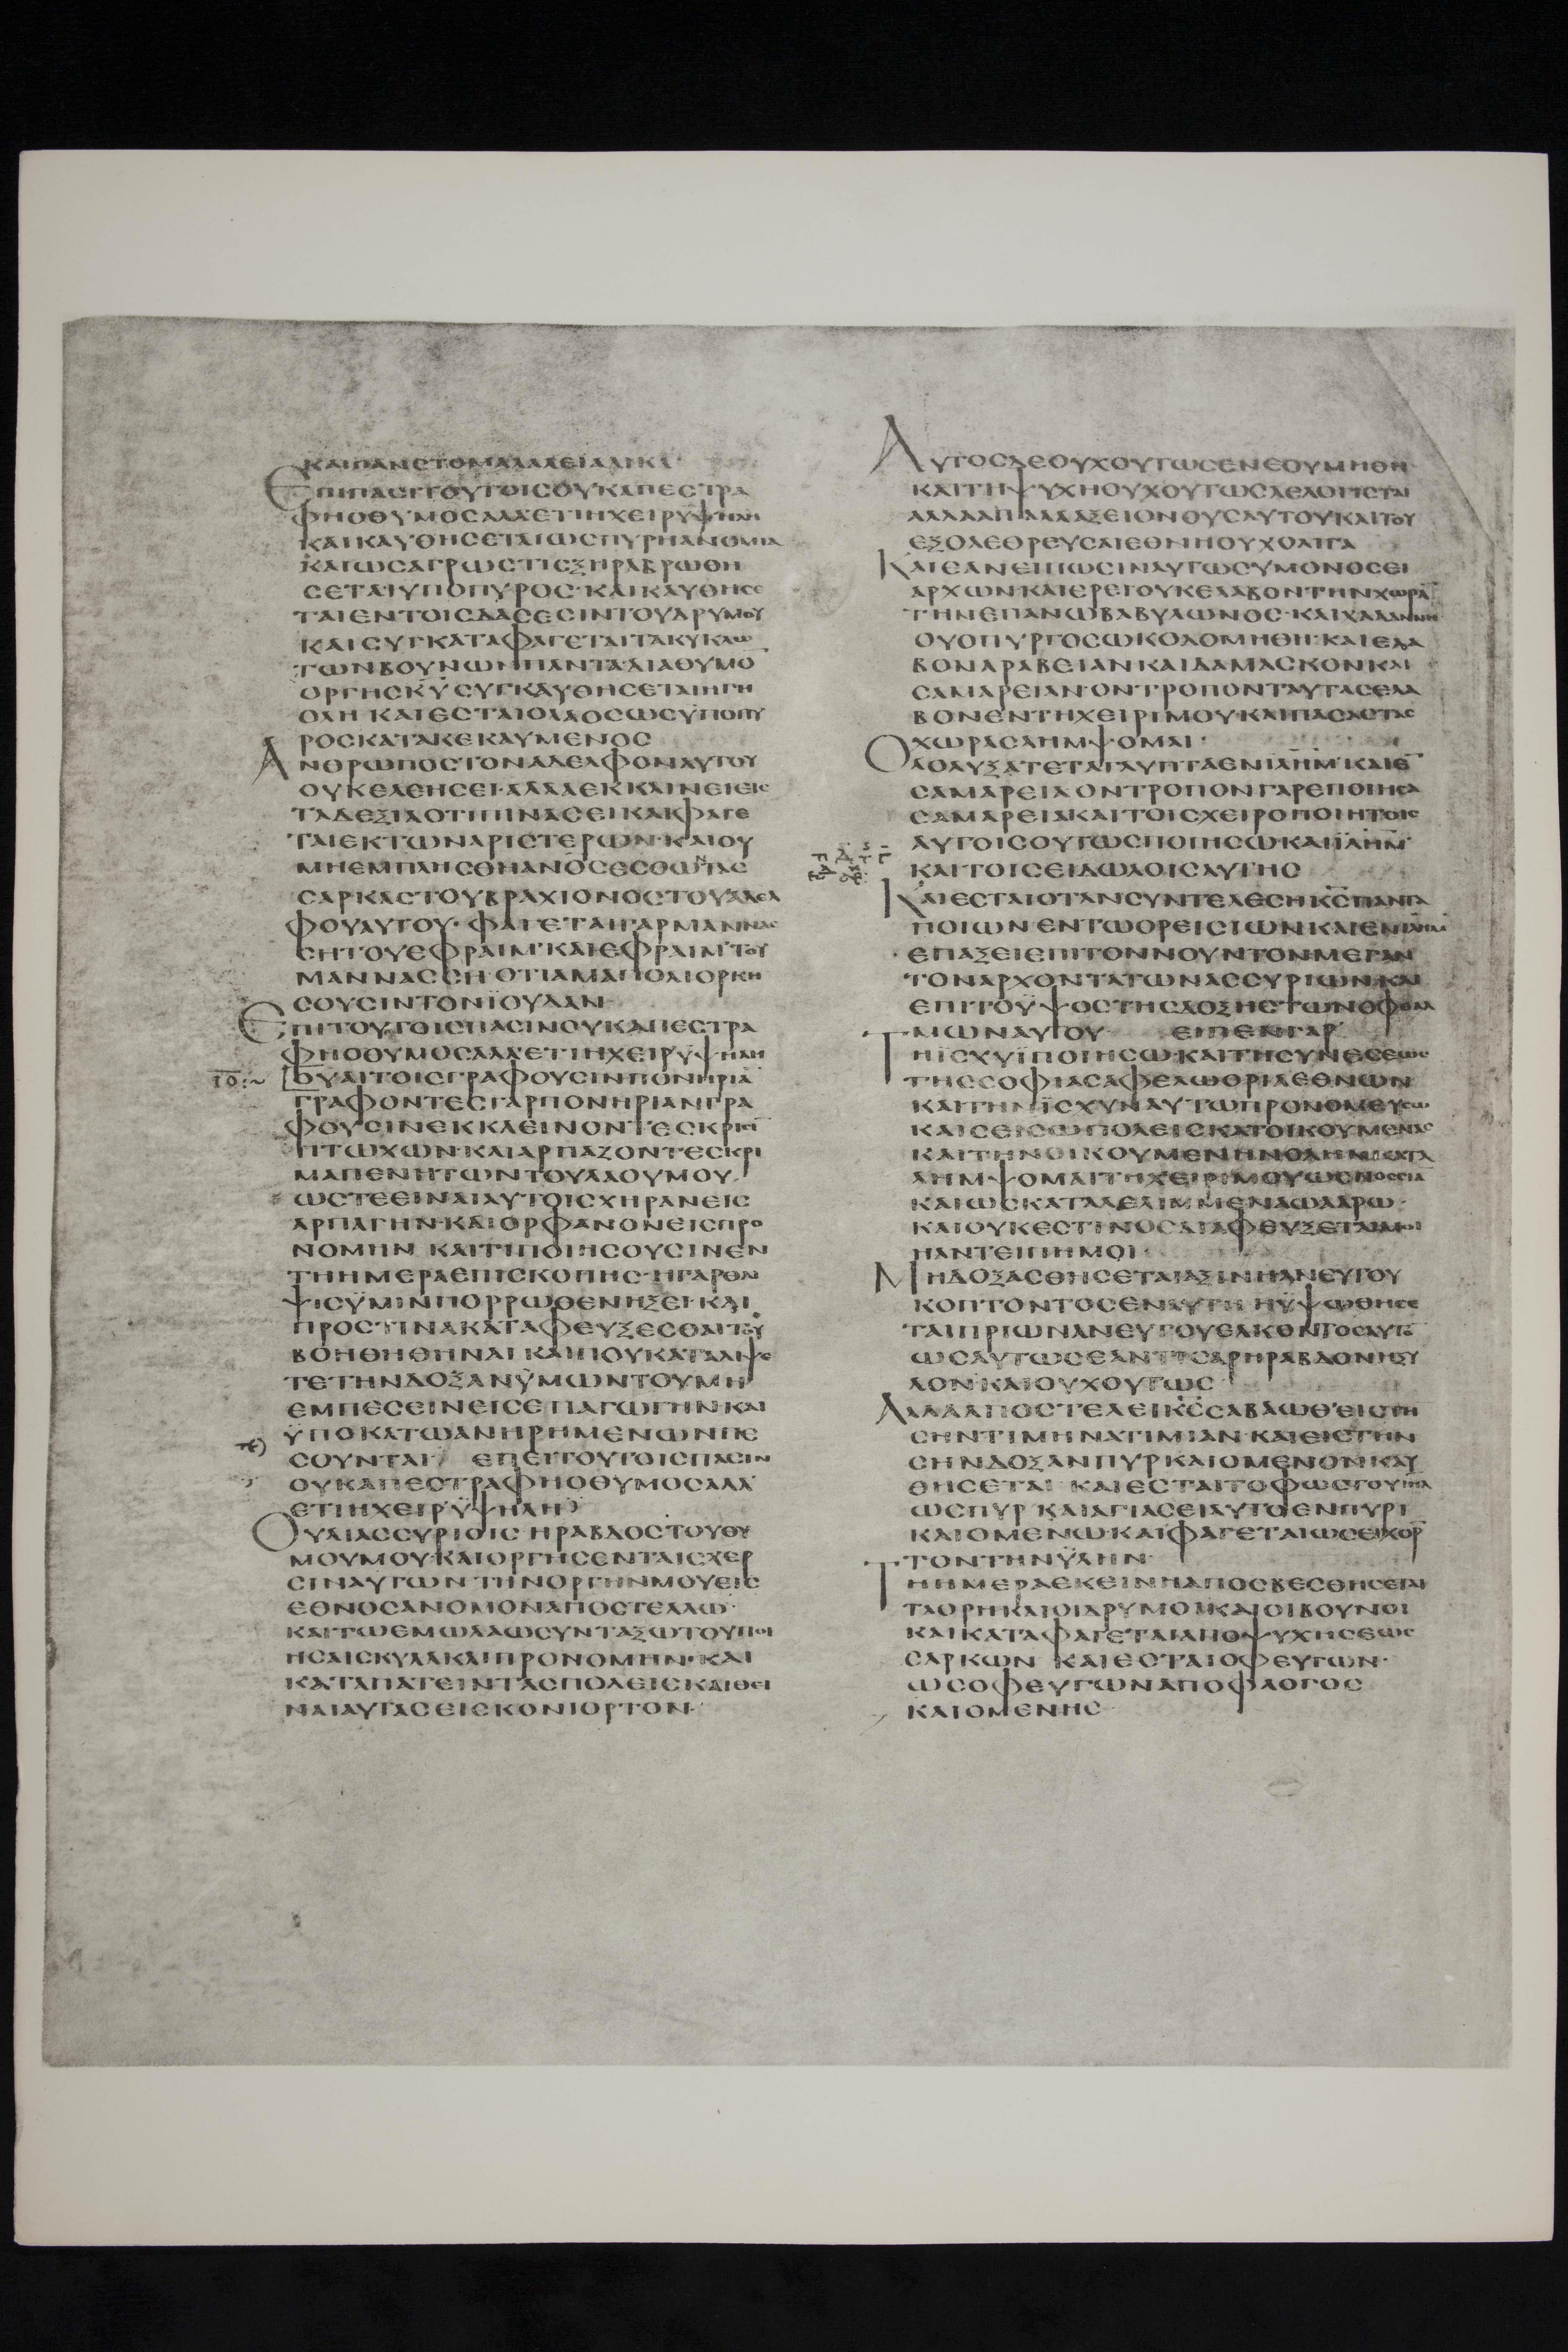 ΚΑΙΠΑΝΣΤΟΜΑΛΑΛΕΙΑΔΙΚΑ
ΕΠΙΠΑΣΙΤΟΥΤΟΙΣΟΥΚΑΠΕΣΤΡΑ
ΦΗΟΘΥΜΟΣΑΛΛΕΤΙΗΧΕΙΡΥΨΗΛΗ
ΚΑΙΚΑΥΘΗΣΕΤΑΙΩΣΠΥΡΗΑΝΟΜΙΑ
ΚΑΙΩΣΑΓΡΩΣΤΙΣΞΗΡΑΒΡΩΘΗ
ΣΕΤΑΙΥΠΟΠΥΡΟΣ·ΚΑΙΚΑΥΘΗΣΕ
ΤΑΙΕΝΤΟΙΣΔΑΣΕΣΙΝΤΟΥΔΡΥΜΟΥ
ΚΑΙΣΥΓΚΑΤΑΦΑΓΕΤΑΙΤΑΚΥΚΛΩ
ΤΩΝΒΟΥΝΩΝΠΑΝΤΑ·ΔΙΑΘΥΜΟ̅
ΟΡΓΗΣΚ̅Υ̅ΣΥΓΚΑΥΘΗΣΕΤΑΙΗΓΗ
ΟΛΗ ΚΑΙΕΣΤΑΙΟΛΑΟΣΩΣΥΠΟΠΥ
ΡΟΣΚΑΤΑΚΕΚΑΥΜΕΝΟΣ
ΑΝΘΡΩΠΟΣΤΟΝΑΔΕΛΦΟΝΑΥΤΟΥ
ΟΥΚΕΛΕΗΣΕΙ·ΑΛΛΑΕΚΚΛΙΝΕΙΕΙΣ
ΤΑΔΕΞΙΑΟΤΙΠΙΝΑΣΕΙΚΑΙΦΑΓΕ
ΤΑΙΕΚΤΩΝΑΡΙΣΤΕΡΩΝ·ΚΑΙΟΥ
ΜΗΕΜΠΛΗΣΘΗΑΝΟΣΕΣΘΩΝΤΑΣ
ΣΑΡΚΑΣΤΟΥΒΡΑΧΙΟΝΟΣΤΟΥΑΔΕΛ
ΦΟΥΑΥΤΟΥ· ΦΑΓΕΤΑΙΓΑΡΜΑΝΝΑΣ
ΣΗΤΟΥΕΦΡΑΙΜ·ΚΑΙΕΦΡΑΙΜΤΟΥ
ΜΑΝΝΑΣΣΗ·ΟΤΙΑΜΑΠΟΛΙΟΡΚΗ
ΣΟΥΣΙΝΤΟΝΪΟΥΔΑΝ·
ΕΠΙΤΟΥΤΟΙΣΠΑΣΙΝΟΥΚΑΠΕΣΤΡΑ
ΦΗΟΘΥΜΟΣΑΛΛΕΤΙΗΧΕΙΡΫΨΗΛΗ
ΟΥΑΙΤΟΙΣΓΡΑΦΟΥΣΙΝΠΟΝΗΡΙΑ̅
ΓΡΑΦΟΝΤΕΣΓΑΡΠΟΝΗΡΙΑΝΓΡΑ
ΦΟΥΣΙΝΕΚΚΛΕΙΝΟΝΤΕΣΚΡΙΣΙ̅
ΠΤΩΧΩΝ·ΚΑΙΑΡΠΑΖΟΝΤΕΣΚΡΙ
ΜΑΠΕΝΗΤΩΝΤΟΥΛΑΟΥΜΟΥ
ΩΣΤΕΕΙΝΑΙΑΥΤΟΙΣΧΗΡΑΝΕΙΣ
ΑΡΠΑΓΗΝ·ΚΑΙΟΡΦΑΝΟΝΕΙΣΠΡΟ
ΝΟΜΗΝ ΚΑΙΤΙΠΟΙΗΣΟΥΣΙΝΕΝ
ΤΗΗΜΕΡΑΕΠΙΣΚΟΠΗΣ·ΗΓΑΡΘΛΙ
ΨΙΣΫΜΙΝΠΟΡΡΩΘΕΝΗΞΕΙ·ΚΑΙ
ΠΡΟΣΤΙΝΑΚΑΤΑΦΕΥΞΕΣΘΑΙΤΟΥ
ΒΟΗΘΗΘΗΝΑΙ ΚΑΙΠΟΥΚΑΤΑΛΙΨΕ
ΤΕΤΗΝΔΟΞΑΝΫΜΩΝΤΟΥΜΗ
ΕΜΠΕΣΕΙΝΕΙΣΕΠΑΓΩΓΗΝΚΑΙ
ΫΠΟΚΑΤΩΑΝΗΡΗΜΕΝΩΝΠΕ
ΣΟΥΝΤΑΙ ΕΠΕΙΤΟΥΤΟΙΣΠΑΣΙΝ
ΟΥΚΑΠΕΣΤΡΑΦΗΟΘΥΜΟΣΑΛΛ
ΕΤΙΗΧΕΙΡΫΨΗΛΗ
ΟΥΑΙΑΣΣΥΡΙΟΙΣ·ΗΡΑΒΔΟΣΤΟΥΘΥ
ΜΟΥΜΟΥ·ΚΑΙΟΡΓΗΣΕΝΤΑΙΣΧΕΡ
ΣΙΝΑΥΤΩΝ·ΤΗΝΟΡΓΗΝΜΟΥΕΙΣ
ΕΘΝΟΣΑΝΟΜΟΝΑΠΟΣΤΕΛΛΩ·
ΚΑΙΤΩΕΜΩΛΑΩΣΥΝΤΑΞΩΤΟΥΠΟΙ
ΗΣΑΙΣΚΥΛΑΚΑΙΠΡΟΝΟΜΗΝ·ΚΑΙ
ΚΑΤΑΠΑΤΕΙΝΤΑΣΠΟΛΕΙΣΚΑΙΘΕΙ
ΝΑΙΑΥΤΑΣΕΙΣΚΟΝΙΟΡΤΟΝ·
ΑΥΤΟΣΔΕΟΥΧΟΥΤΩΣΕΝΕΘΥΜΗΘΗ
ΚΑΙΤΗΨΥΧΗΟΥΧΟΥΤΩΣΛΕΛΟΓΙΣΤΑΙ
ΑΛΛΑΑΠΑΛΛΑΞΕΙΟΝΟΥΣΑΥΤΟΥΚΑΙΤΟΥ
ΕΞΟΛΕΘΡΕΥΣΑΙΕΘΝΗΟΥΧΟΛΙΓΑ
ΚΑΙΕΑΝΕΙΠΩΣΙΝΑΥΤΩΣΥΜΟΝΟΣΕΙ
ΑΡΧΩΝ·ΚΑΙΕΡΕΙΟΥΚΕΛΑΒΟΝΤΗΝΧΩΡΑ̅
ΤΗΝΕΠΑΝΩΒΑΒΥΛΩΝΟΣ·ΚΑΙΧΑΛΑΝΝΗ
ΟΥΟΠΥΡΓΟΣΩΚΟΔΟΜΗΘΗ·ΚΑΙΕΛΑ
ΒΟΝΑΡΑΒΕΙΑΝΚΑΙΔΑΜΑΣΚΟΝΚΑΙ
ΣΑΜΑΡΕΙΑΝ·ΟΝΤΡΟΠΟΝΤΑΥΤΑΣΕΛΑ
ΒΟΝΕΝΤΗΧΕΙΡΙΜΟΥ·ΚΑΙΠΑΣΑΣΤΑΣ
ΧΩΡΑΣΛΗΜΨΟΜΑΙ·
ΟΛΟΛΥΞΑΤΕΤΑΓΛΥΠΤΑΕΝΙΛΗΜ·ΚΑΙΕ̅
ΣΑΜΑΡΕΙΑΟΝΤΡΟΠΟΝΓΑΡΕΠΟΙΗΣΑ
ΣΑΜΑΡΕΙΑΚΑΙΤΟΙΣΧΕΙΡΟΠΟΙΗΤΟΙΣ
ΑΥΤΟΙΣΟΥΤΩΣΠΟΙΗΣΩΚΑΙΪΛΗΜ·
ΚΑΙΤΟΙΣΕΙΔΩΛΟΙΣΑΥΤΗΣ
ΚΑΙΕΣΤΑΙΟΤΑΝΣΥΝΤΕΛΕΣΗΚ̅Σ̅ΠΑΝΤΑ
ΠΟΙΩΝΕΝΤΩΟΡΕΙΣΙΩΝΚΑΙΕΝΙΛΗΜ
ΕΠΑΞΕΙΕΠΙΤΟΝΝΟΥΝΤΟΝΜΕΓΑΝ
ΤΟΝΑΡΧΟΝΤΑΤΩΝΑΣΣΥΡΙΩΝ·ΚΑΙ
ΕΠΙΤΟΫΨΟΣΤΗΣΔΟΞΗΣΤΩΝΟΦΘΑΛ
ΜΩΝΑΥΤΟΥ ΕΙΠΕΝΓΑΡ
ΤΗΙΣΧΥΪΠΟΙΗΣΩ·ΚΑΙΤΗΣΥΝΕΣΕΩΣ
ΤΗΣΣΟΦΙΑΣΑΦΕΛΩΟΡΙΑΕΘΝΩΝ
ΚΑΙΤΗΝΪΣΧΥΝΑΥΤΩΠΡΟΝΟΜΕΥΣΩ
ΚΑΙΣΕΙΣΩΠΟΛΕΙΣΚΑΤΟΙΚΟΥΜΕΝΑΣ
ΚΑΙΤΗΝΟΙΚΟΥΜΕΝΗΝΟΛΗΝΚΑΤΑ
ΛΗΜΨΟΜΑΙΤΗΧΕΙΡΙΜΟΥΩΣΝΟΣΣΙΑ
ΚΑΙΩΣΚΑΤΑΛΕΛΙΜΜΕΝΑΩΑΑΡΩ·
ΚΑΙΟΥΚΕΣΤΙΝΟΣΔΙΑΦΕΥΞΕΤΑΙΜΟΙ
ΗΑΝΤΕΙΠΗΜΟΙ·
ΜΗΔΟΞΑΣΘΗΣΕΤΑΙΑΞΙΝΗΑΝΕΥΤΟΥ
ΚΟΠΤΟΝΤΟΣΕΝΑΥΤΗ·ΗΫΨΩΘΗΣΕ
ΤΑΙΠΡΙΩΝΑΝΕΥΤΟΥΕΛΚΟΝΤΟΣΑΥΤΟ̅
ΩΣΑΥΤΩΣΕΑΝΤΙΣΑΡΗΡΑΒΔΟΝΗΞΥ
ΛΟΝ·ΚΑΙΟΥΧΟΥΤΩΣ
ΑΛΛΑΑΠΟΣΤΕΛΕΙΚ̅Σ̅ΣΑΒΑΩΘ·ΕΙΣΤΗ
ΣΗΝΤΙΜΗΝΑΤΙΜΙΑΝ·ΚΑΙΕΙΣΤΗΝ
ΣΗΝΔΟΞΑΝΠΥΡΚΑΙΟΜΕΝΟΝΚΑΥ
ΘΗΣΕΤΑΙ ΚΑΙΕΣΤΑΙΤΟΦΩΣΤΟΥΙΗΛ
ΩΣΠΥΡ ΚΑΙΑΓΙΑΣΕΙΑΥΤΟΕΝΠΥΡΙ
ΚΑΙΟΜΕΝΩ·ΚΑΙΦΑΓΕΤΑΙΩΣΕΙΧΟΡ
ΤΟΝΤΗΝΫΛΗΝ·
ΤΗΗΜΕΡΑΕΚΕΙΝΗΑΠΟΣΒΕΣΘΗΣΕΤΑΙ
ΤΑΟΡΗΚΑΙΟΙΔΡΥΜΟΙΚΑΙΟΙΒΟΥΝΟΙ
ΚΑΙΚΑΤΑΦΑΓΕΤΑΙΑΠΟΨΥΧΗΣΕΩΣ
ΣΑΡΚΩΝ ΚΑΙΕΣΤΑΙΟΦΕΥΓΩΝ·
ΩΣΟΦΕΥΓΩΝΑΠΟΦΛΟΓΟΣ
ΚΑΙΟΜΕΝΗΣ